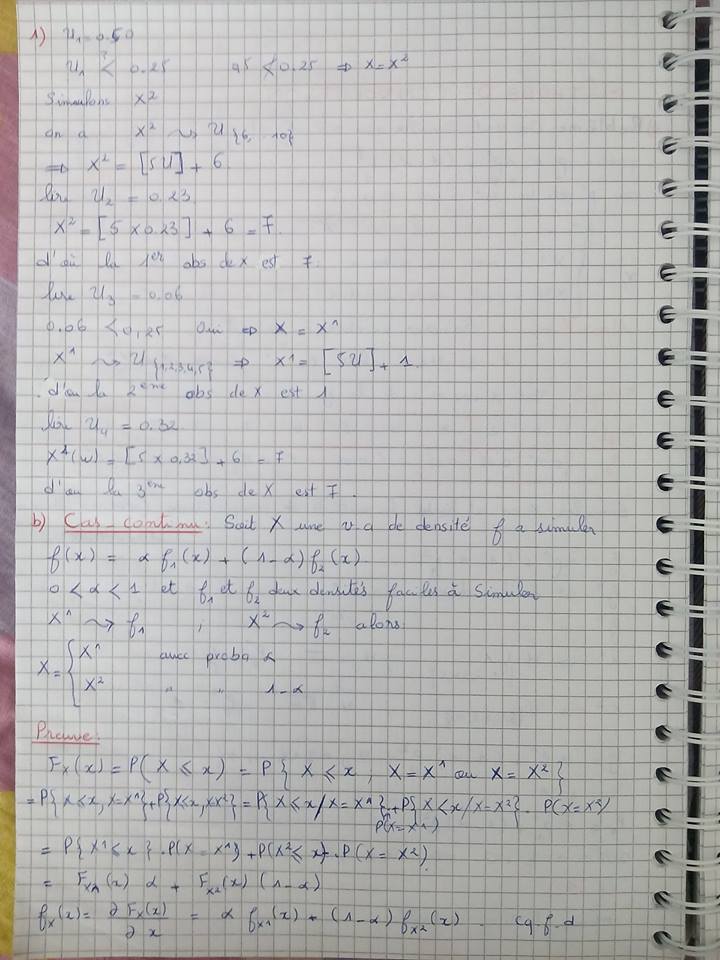 1) U₁ = 0.50
U₁ <? 0.25 0.5 ≮ 0.25 ⇒ X = X²
Simulons X²
on a X² ⤳ U{6, 10}
⇒ X² = [5U] + 6
lire U₂ = 0.23
X² = [5 × 0.23] + 6 = 7.
d'où la 1er obs de X est 7.
lire U₃ = 0.06
0.06 < 0,25 Oui ⇒ X = X¹
X¹ ⤳ U{1,2,3,4,5} ⇒ X¹ = [5U] + 1.
d'où la 2ème obs de X est 1
lire U₄ = 0.32
X²(w) = [5 × 0,32] + 6 = 7
d'où la 3ème obs de X est 7.
b) Cas-continu: Soit X une v a de densité f a simuler
f(x) = α f₁(x) + (1-α) f₂(x)
0 < α < 1 et f₁ et f₂ deux densités faciles à Simuler
X¹ ⤳ f₁ ; X² ⤳ f₂ alors
X = { X¹ avec proba α
X² " " 1-α
Preuve:
F_X(x) = P(X ≤ x) = P{ X ≤ x, X = X¹ ou X = X² }
= P{X ≤ x, X = X¹} + P{X ≤ x, X = X²} = P{X ≤ x / X = X¹} . P(X = X¹) + P{X ≤ x / X = X²} . P(X = X²)
= P{X¹ ≤ x} . P(X = X¹) + P(X² ≤ x) . P(X = X²)
= F_X¹(x) α + F_X²(x) (1-α)
f_X(x) = ∂F_X(x) / ∂x = α f_X¹(x) + (1-α) f_X²(x). cq-f-d